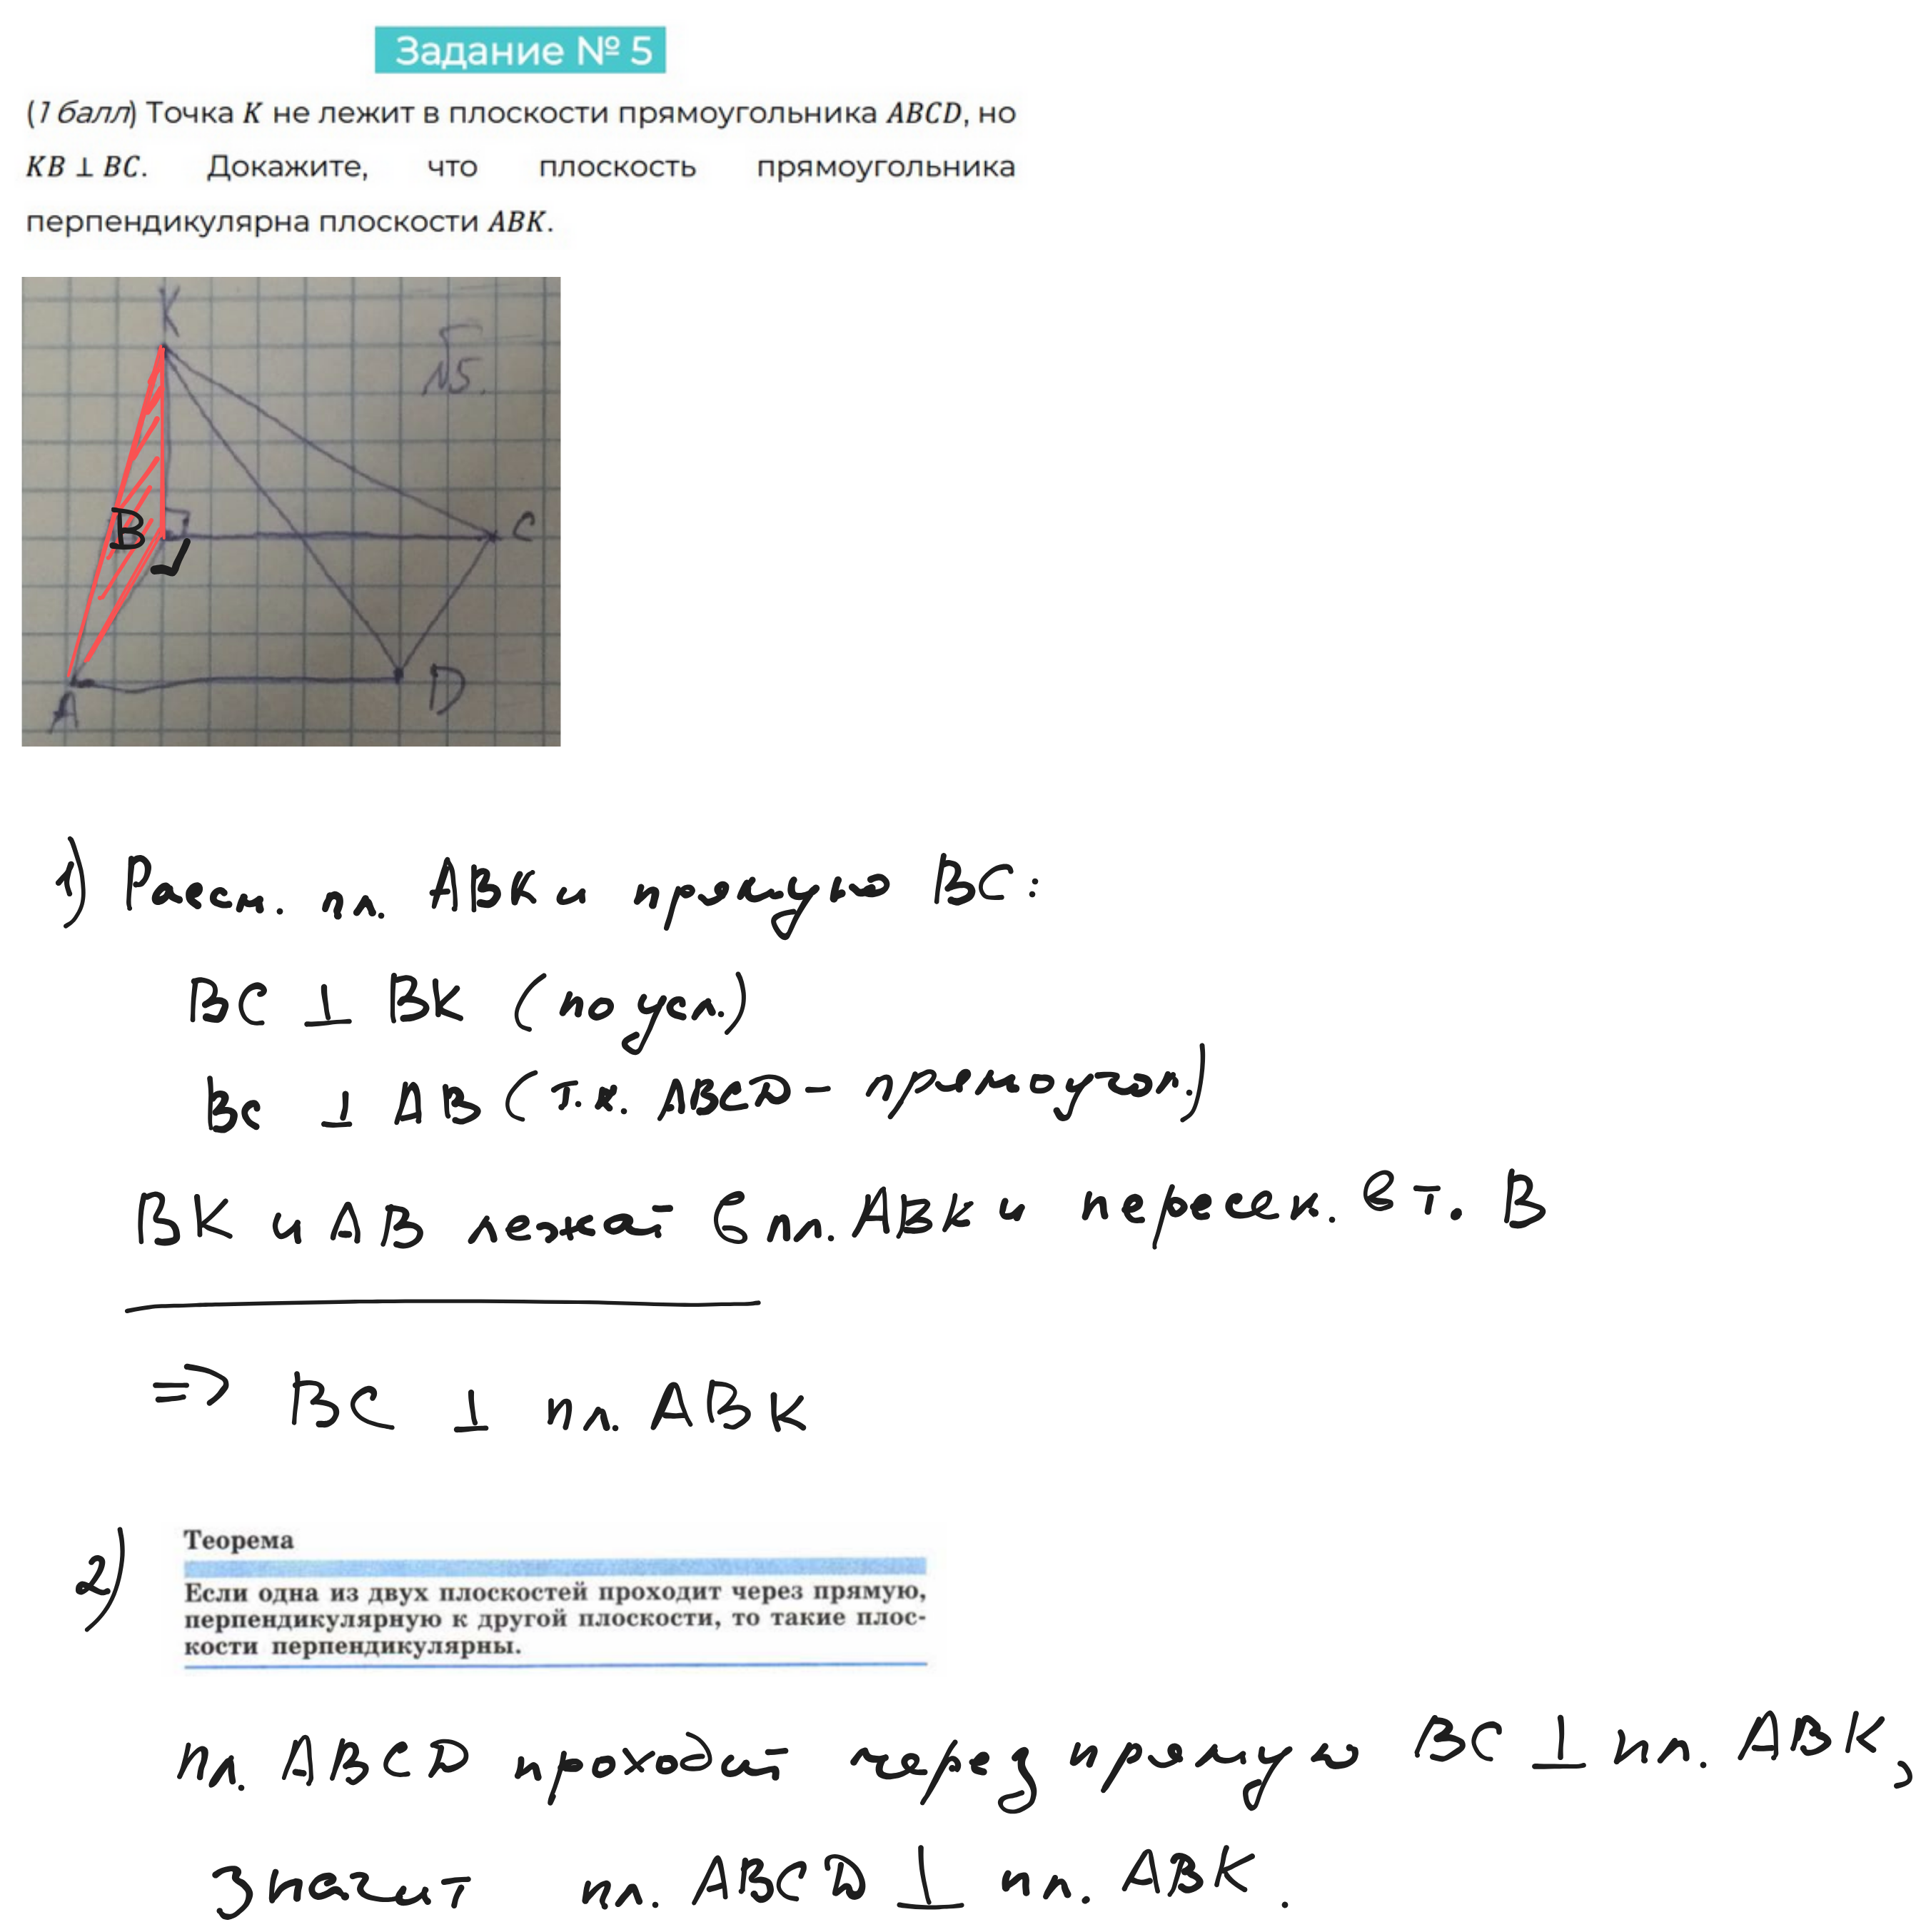 Задание № 5
(1 балл) Точка K не лежит в плоскости прямоугольника ABCD, но
KB ⊥ BC. Докажите, что плоскость прямоугольника
перпендикулярна плоскости ABK.
K
№5.
B
C
A
D
1) Рассм. пл. ABK и прямую BC:
BC ⊥ BK (по усл.)
BC ⊥ AB (т.к. ABCD – прямоугол.)
BK и AB лежат в пл. ABK и пересек. в т. B
=> BC ⊥ пл. ABK
2) Теорема
Если одна из двух плоскостей проходит через прямую,
перпендикулярную к другой плоскости, то такие плос-
кости перпендикулярны.
пл. ABCD проходит через прямую BC ⊥ пл. ABK,
значит пл. ABCD ⊥ пл. ABK.